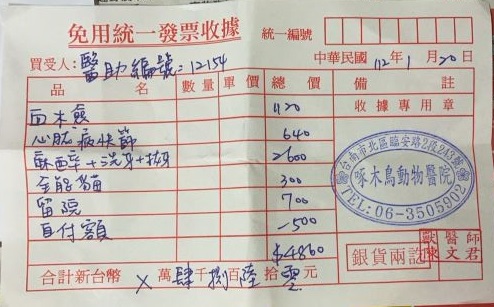 免用統一發票收據
統一編號
買受人：醫助編號：12154
中華民國 112年 1月 20日
品名 數量 單價 總價 備註
收據專用章
1120
心肺疾快篩 640
麻醉 + 洗牙 + 拔牙 2600
全能貓 300
留院 700
自付額 -500
$4860
台南市北區臨安路2段243號
啄木鳥動物醫院
TEL: 06-3505902
銀貨兩訖
獸醫師
陳文君
合計新台幣 X 萬 肆 千 捌 百 陸 拾 零 元